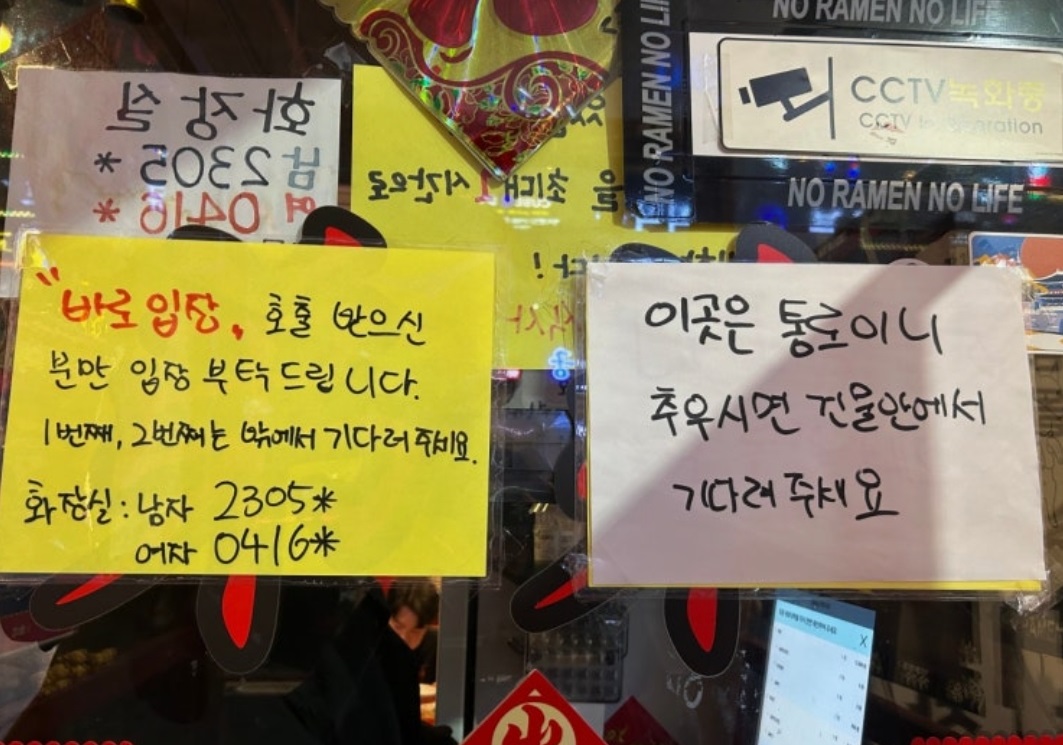 NO RAMEN NO LIFE
NO RAMEN NO LIFE
CCTV 녹화중
CCTV in
NO RAMEN NO LIFE
화장실
남 2305 *
여 0416 *
최대 시간으로
"바로입장, 호출 받으신
분만 입장 부탁드립니다.
1번째, 2번째는 밖에서 기다려주세요.
화장실 : 남자 2305*
여자 0416*
이곳은 통로이니
추우시면 건물안에서
기다려주세요